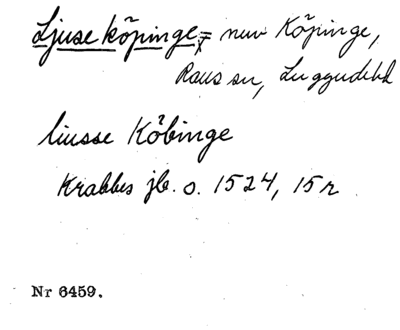 Ljuse köpinge = nuv Köpinge,
Raus sn, Luggude hd
liusse Köbinge
Krabbes jb. o. 1524, 15 r
Nr 6459.